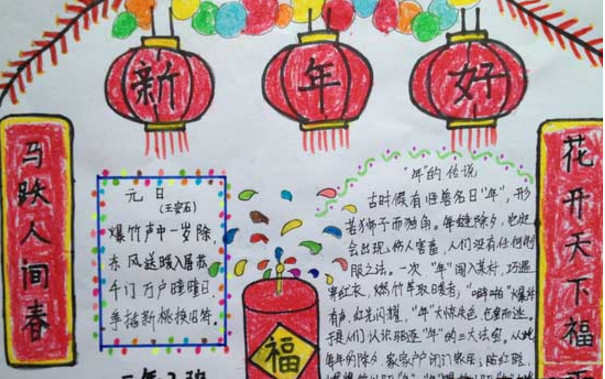 新年好
马跃人间春
花开天下福
元日
(王安石)
爆竹声中一岁除,
东风送暖入屠苏
千门万户曈曈日,
手指新桃换旧符。
福
"年"的传说
古时候有怪兽名曰"年",形
若狮子而独角。每缝除夕,它便
会出现,伤人害畜,人们没有任何制
服之法。一次"年"闯入某村,巧遇
穿红衣,燃竹竿取暖者,"噼啪"爆炸
有声,红光闪耀,"年"大惊失色,仓皇而逃。
于是人们认识驱逐"年"的三大法宝,从此
每年的除夕家家户户闭门
二年2班